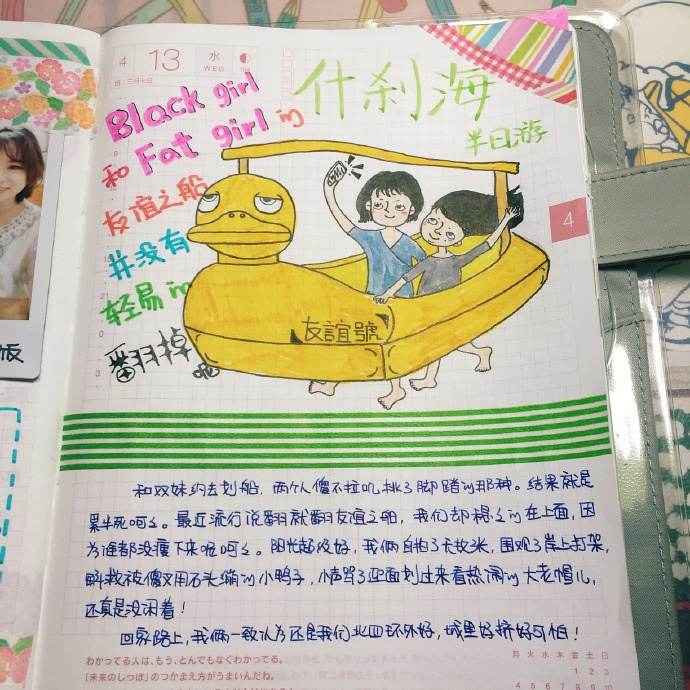 4 13 水
WED
旧 三月七日
什刹海
半日游
Black girl
和 Fat girl 的
友谊之船
并没有
轻易的
翻掉
呢
友誼號
4
饭
和双妹约去划船，两个人傻不拉叽挑了脚踏的那种。结果就是
累半死呵呵。最近流行说翻就翻友谊之船，我们却稳稳的在上面，因
为谁都没瘦下来呢呵呵。阳光超级好，我俩自拍了长女米，围观了岸上打架，
解救被傻叉用石头绷的小鸭子，小声骂了迎面划过来看热闹的大老帽儿，
还真是没闲着！
回家路上，我俩一致认为还是我们北四环外好，城里好挤好可怕！
わかってる人は、もう、とんでもなくわかってる。
「未来のしっぽ」のつかまえ方がうまいんだなぁ。
月 火 水 木 金 土 日
1 2 3
4 5 6 7 8 9 10